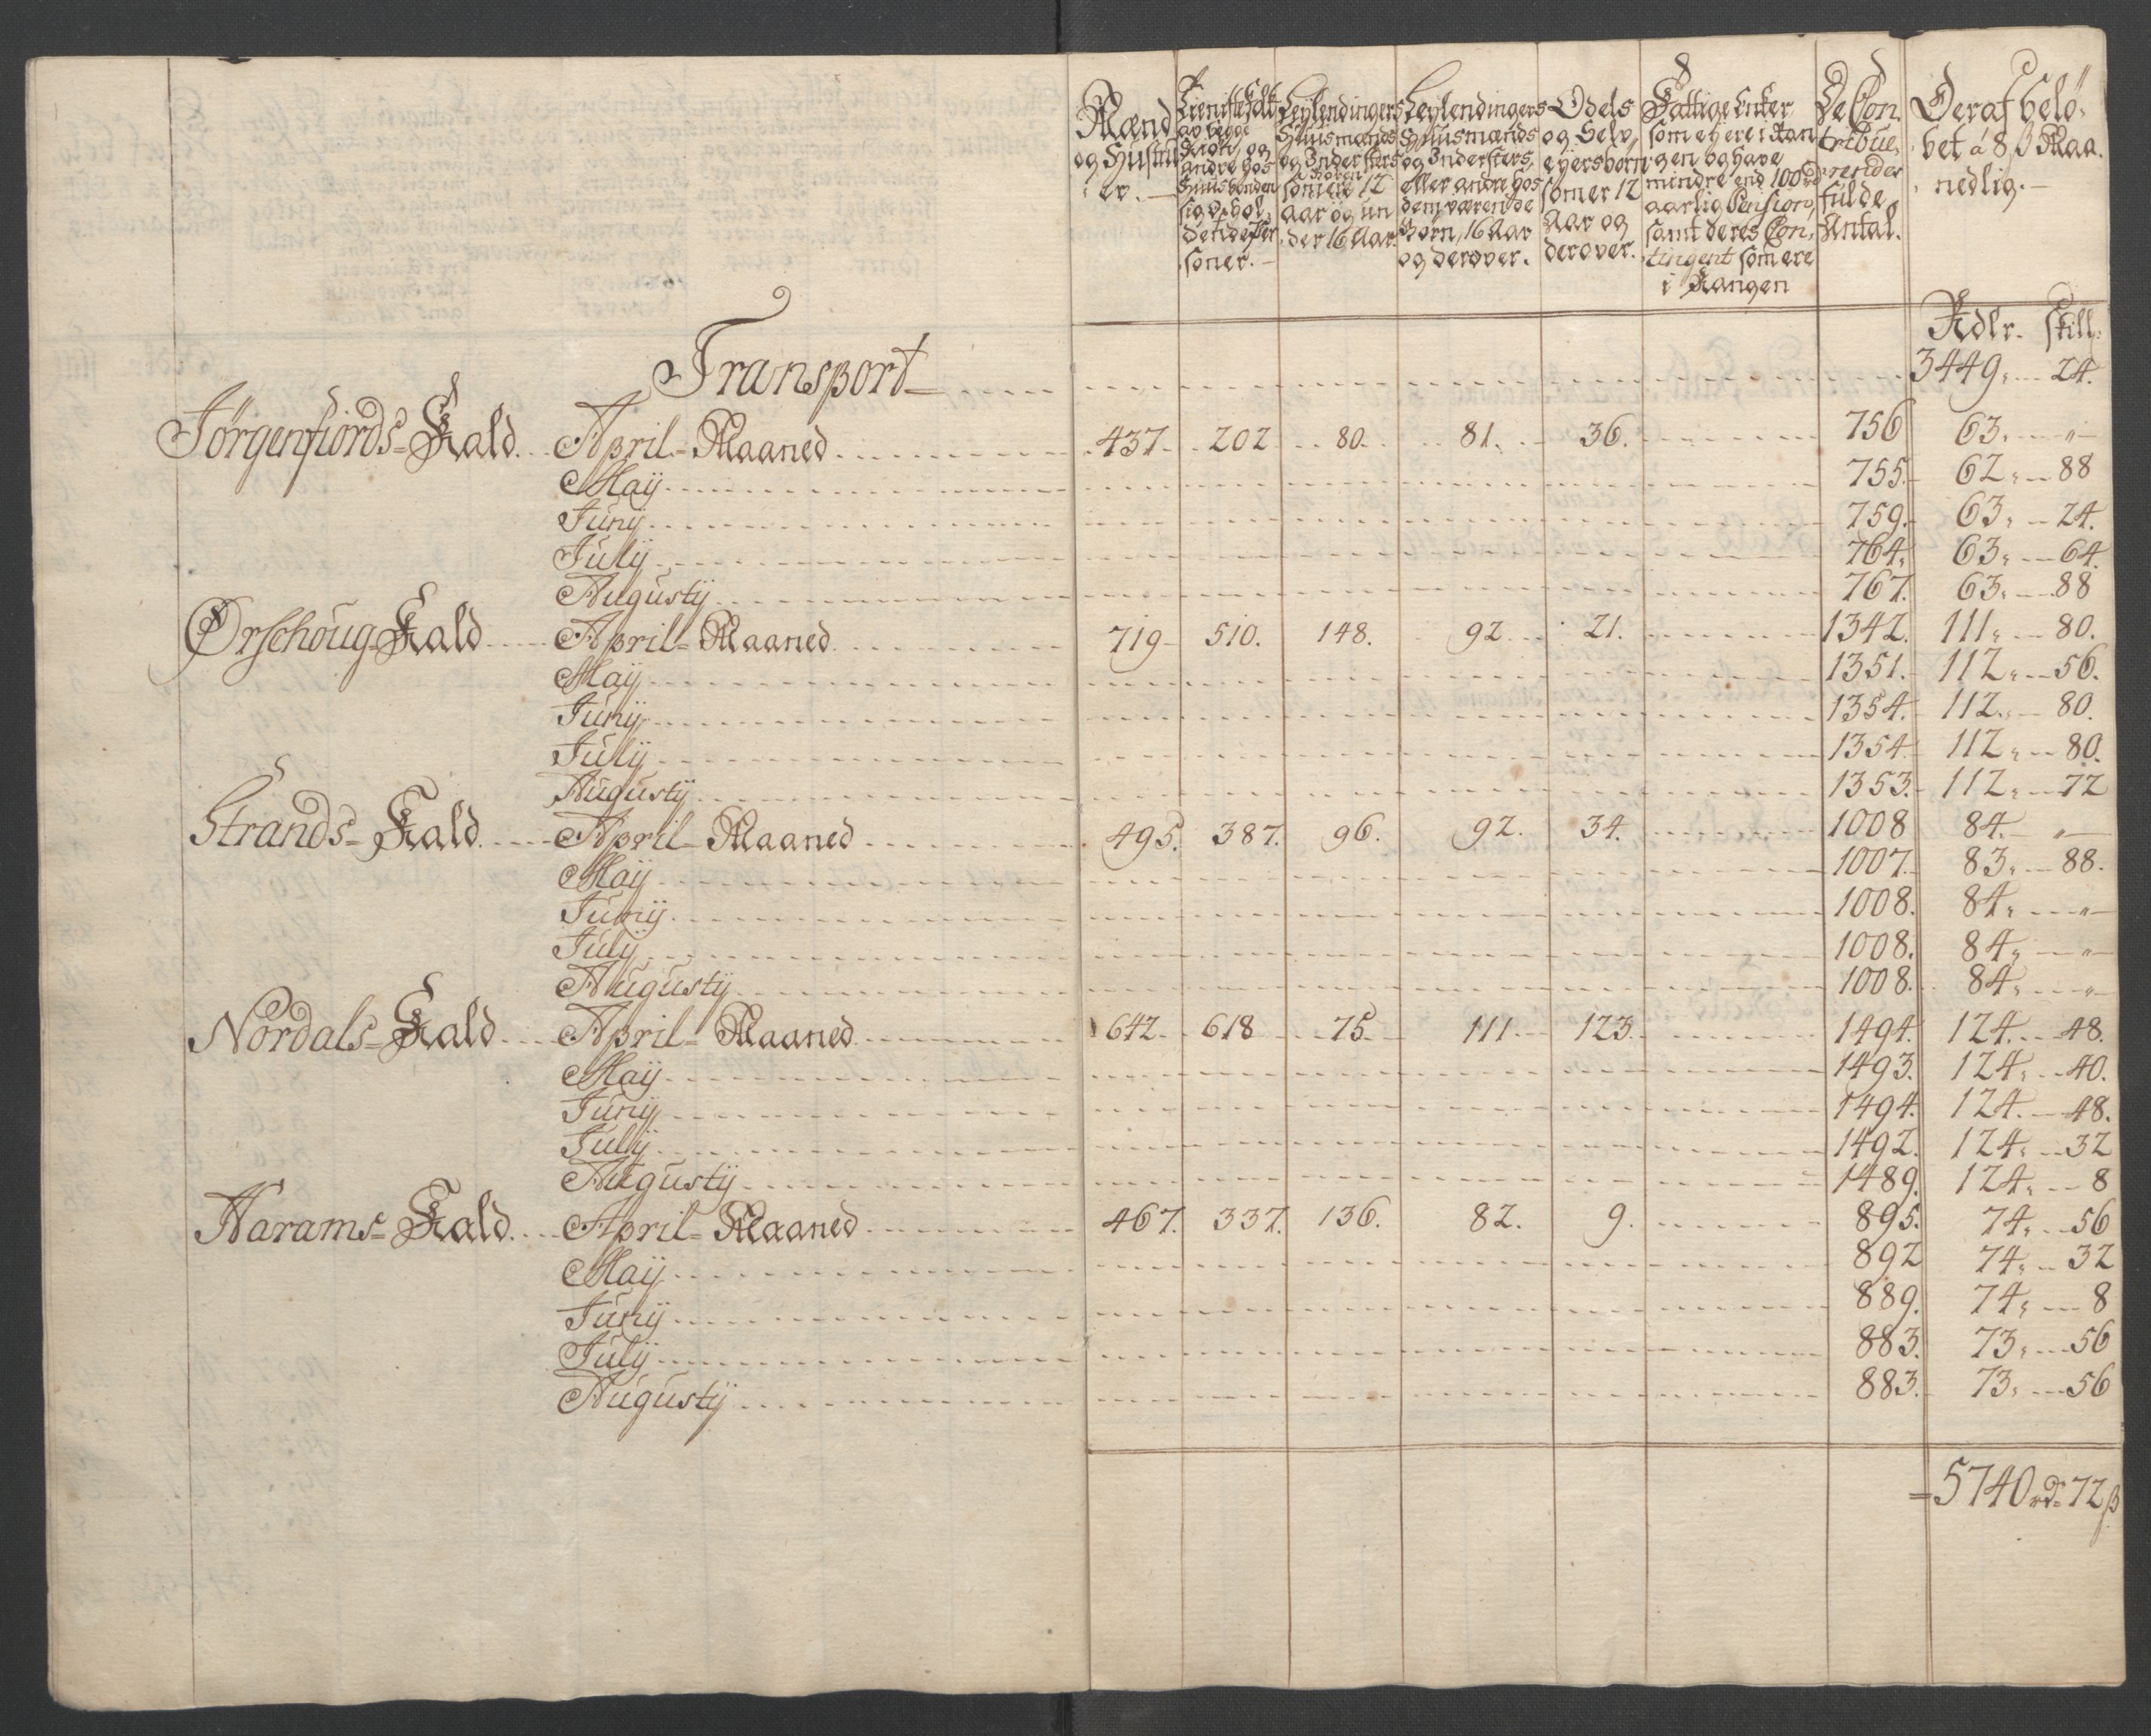 Mænd
og Hustru
er.
Tieniste Folk
av begge
Kiøn, og
andre hos
Huusbonden
sig ophol
dende Per
soner.
Leylendingers
Huusmænds
og Inderster
Børen
som ere 12
aar og un
der 16 Aar.
Leylendingers
Huusmænds
og Indersters,
eller andre hos
dem værende
Børn, 16 Aar
og derover.
Odels
og Selv
eyersbørn
som er 12
Aar og
derover.
Fattige Enker
som ey ere i Ran
gen og have
mindre end 100 rd
aarlig Pension,
samt deres Con
tingent som ere
i Rangen
De Con
tribue
render
fulde
Antal.
Deraf belø
bet á 8 β Maa
nedlig.
Rdlr. skill:
Transport 3449. 24.
Jørgenfiords Kald. April Maaned 437. 202 80. 81. 36. 756 63. "
Maij 755. 62. 88
Junij 759. 63. 24.
Julij 764. 63. 64.
Augustij 767. 63. 88
Ørschoug Kald April Maaned 719 510. 148. 92. 21. 1342. 111. 80.
Maij 1351. 112. 56.
Junij 1354. 112. 80.
Julij 1354 112. 80.
Augustij 1353. 112. 72
Strands Kald April Maaned 495. 387. 96. 92. 34. 1008 84. "
Maij 1007. 83. 88.
Junij 1008. 84. "
Julij 1008. 84. "
Augustij 1008. 84. "
Nordals Kald April Maaned 642 618 75. 111 123. 1494. 124. 48.
Maij 1493. 124. 40.
Junij 1494. 124. 48.
Julij 1492. 124. 32
Augustij 1489. 124. 8
Harams Kald April Maaned 467. 337. 136. 82. 9. 895. 74. 56
Maij 892 74. 32
Junij 889. 74. 8
Julij 883. 73. 56
Augustij 883. 73. 56
= 5740 rd. 72 β